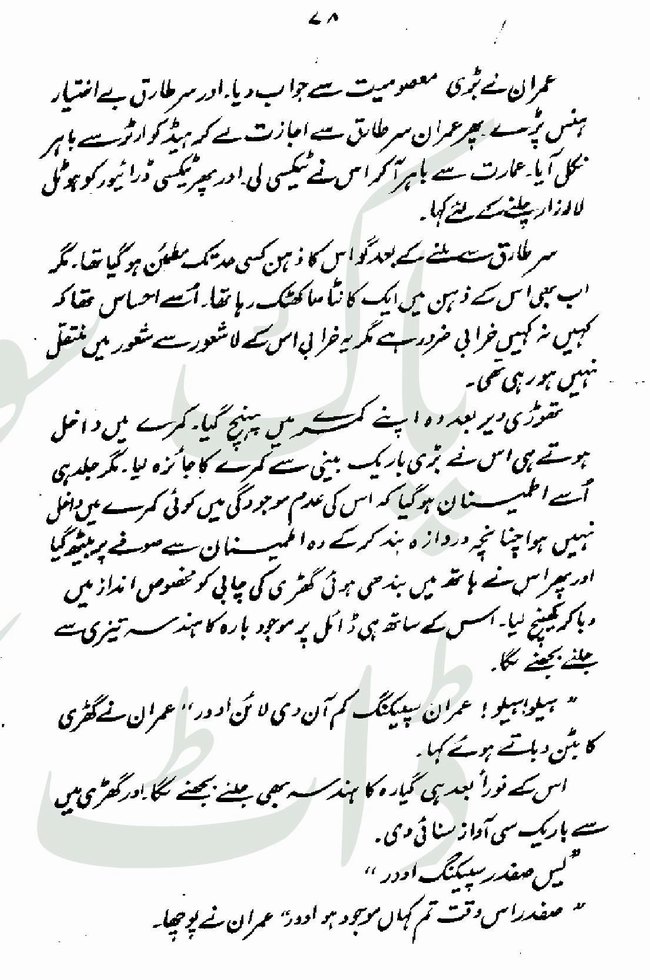 ۷۸
عمران نے بڑی معصومیت سے جواب دیا۔ اور سر طارق بے اختیار
ہنس پڑے۔ پھر عمران سر طارق سے اجازت لے کر ہیڈ کوارٹر سے باہر
نکل آیا۔ عمارت سے باہر آ کر اس نے ٹیکسی لی۔ اور پھر ٹیکسی ڈرائیور کو ہوٹل
لالہ زار چلنے کے لئے کہا۔
سر طارق سے ملنے کے بعد گو اس کا ذہن کسی حد تک مطمئن ہو گیا تھا۔ مگر
اب بھی اس کے ذہن میں ایک کانٹا سا کھٹک رہا تھا۔ اُسے احساس تھا کہ
کہیں نہ کہیں خرابی ضرور ہے مگر یہ خرابی اس کے لاشعور سے شعور میں منتقل
نہیں ہو رہی تھی۔
تھوڑی دیر بعد وہ اپنے کمرے میں پہنچ گیا۔ کمرے میں داخل
ہوتے ہی اس نے بڑی باریک بینی سے کمرے کا جائزہ لیا۔ مگر جلد ہی
اُسے اطمینان ہو گیا کہ اس کی عدم موجودگی میں کوئی کمرے میں داخل
نہیں ہوا چنانچہ دروازہ بند کر کے وہ اطمینان سے صوفے پر بیٹھ گیا
اور پھر اس نے ہاتھ میں بندھی ہوئی گھڑی کی چابی کو مخصوص انداز میں
دبا کر کھینچ لیا۔ اس کے ساتھ ہی ڈائل پر موجود بارہ کا ہندسہ تیزی سے
جلنے بجھنے لگا۔
"ہیلو ہیلو! عمران سپیکنگ کم آن دی لائن اوور" عمران نے گھڑی
کا بٹن دباتے ہوئے کہا۔
اس کے فوراً بعد ہی گیارہ کا ہندسہ بھی جلنے بجھنے لگا۔ اور گھڑی میں
سے باریک سی آواز سنائی دی۔
"یس صفدر سپیکنگ اوور"
"صفدر اس وقت تم کہاں موجود ہو اوور" عمران نے پوچھا۔
پاک
ڈاٹ